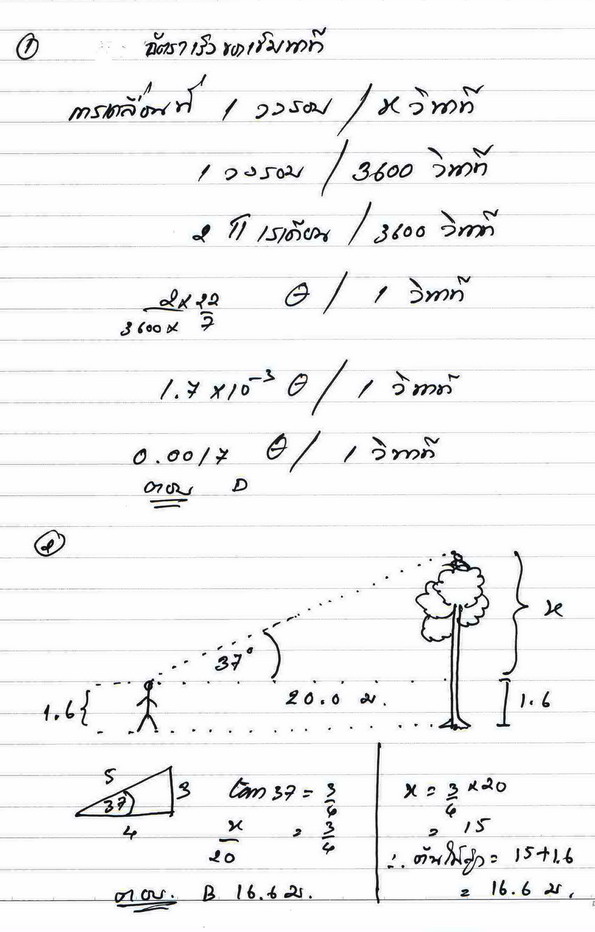 ① อัตราเร็วของเข็มนาที
การเคลื่อนที่ 1 วงรอบ / x วินาที
1 วงรอบ / 3600 วินาที
2 π เรเดียน / 3600 วินาที
2 × 22 / 3600 × 7 θ / 1 วินาที
1.7 × 10⁻³ θ / 1 วินาที
0.0017 θ / 1 วินาที
ตอบ D
②
x
37°
1.6
20.0 ม.
1.6
5
37
3
4
tan 37 = 3/4
x/20 = 3/4
ตอบ. B 16.6 ม.
x = 3/4 × 20
= 15
∴ ต้นไม้สูง = 15+1.6
= 16.6 ม.